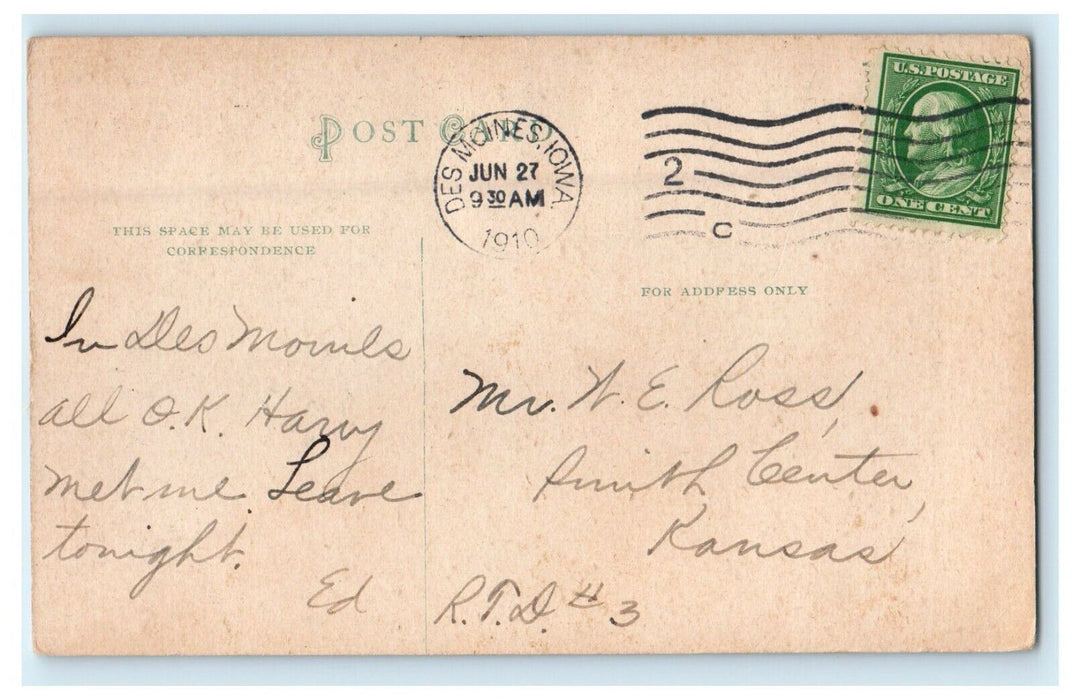 POST CARD
DES MOINES, IOWA.
JUN 27
9 30 AM
1910
2
C
U.S. POSTAGE
ONE CENT
THIS SPACE MAY BE USED FOR
CORRESPONDENCE
In Des Moines
all O.K. Harvy
met me. Leave
tonight.
Ed
FOR ADDRESS ONLY
Mr. W. E. Ross,
Smith Center,
Kansas
R.F.D. # 3